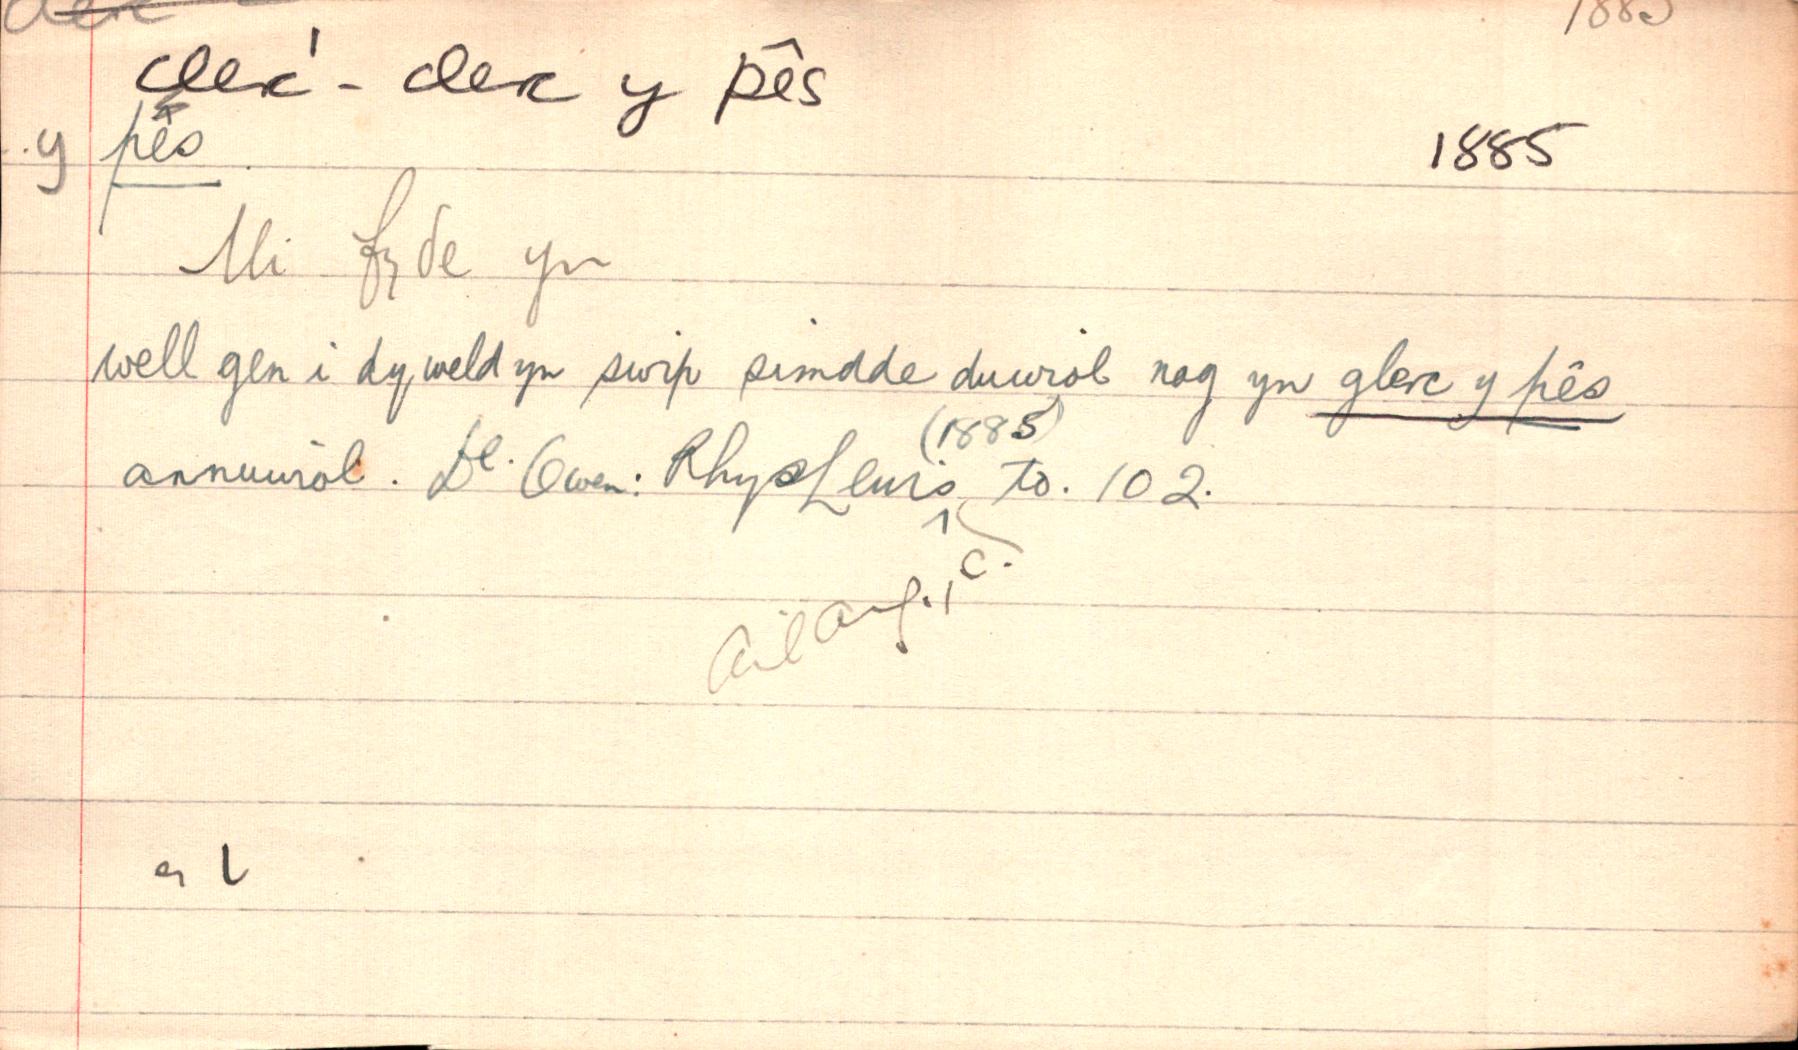 clerc 1885
clerc¹ - clerc y pês
y pês 1885
Mi fyde yn
well gen i dy weld yn swip simdde duwiol nag yn glerc y pês
(1885)
annuwiol. Dl. Owen: Rhys Lewis, to. 102.
(ail arg., c.)